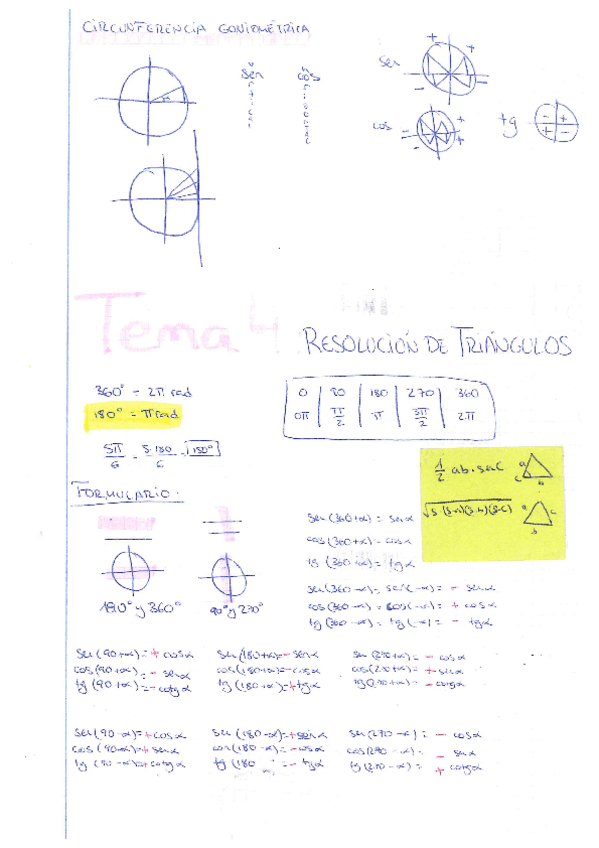 CIRCUNFERENCIA GONIOMÉTRICA
sen cos
sen + + -
cos - + - +
tg - + + -
Tema 4
RESOLUCIÓN DE TRIÁNGULOS
360° = 2π rad
180° = π rad
5π/6 = 5·180/6 = 150°
0 90 180 270 360
0π π/2 π 3π/2 2π
1/2 ab·senC a c b
a c b
FORMULARIO:
180° y 360°
90° y 270°
sen(360+α) = senα
cos(360+α) = cosα
tg(360+α) = tgα
sen(360-α) = sen(-α) = - senα
cos(360-α) = cos(-α) = + cosα
tg(360-α) = tg(-α) = - tgα
sen(90+α) = + cosα
cos(90+α) = - senα
tg(90+α) = - cotgα
sen(180+α) = - senα
cos(180+α) = - cosα
tg(180+α) = + tgα
sen(270+α) = - cosα
cos(270+α) = + senα
tg(270+α) = - cotgα
sen(90-α) = + cosα
cos(90-α) = + senα
tg(90-α) = + cotgα
sen(180-α) = + senα
cos(180-α) = - cosα
tg(180-α) = - tgα
sen(270-α) = - cosα
cos(270-α) = - senα
tg(270-α) = + cotgα